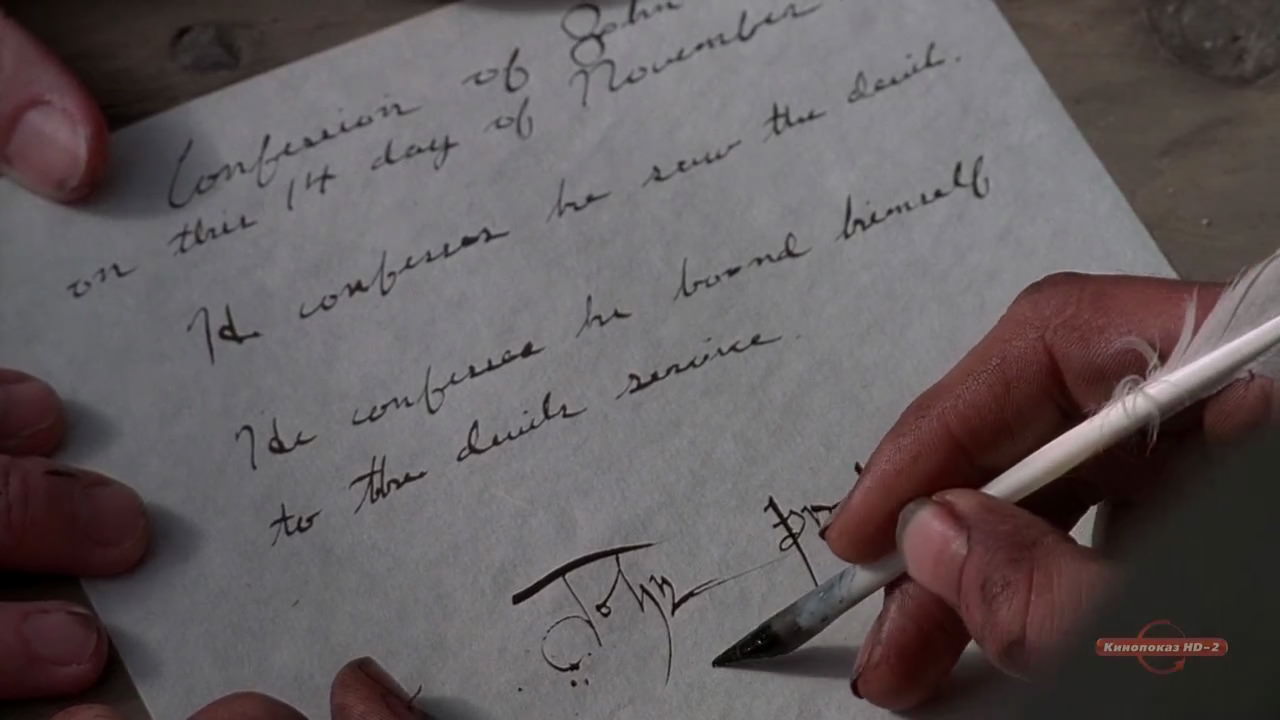 Confession of John
on this 14 day of November
He confesses he saw the devil.
He confesses he bound himself
to the devils service.
John
Кинопоказ HD-2